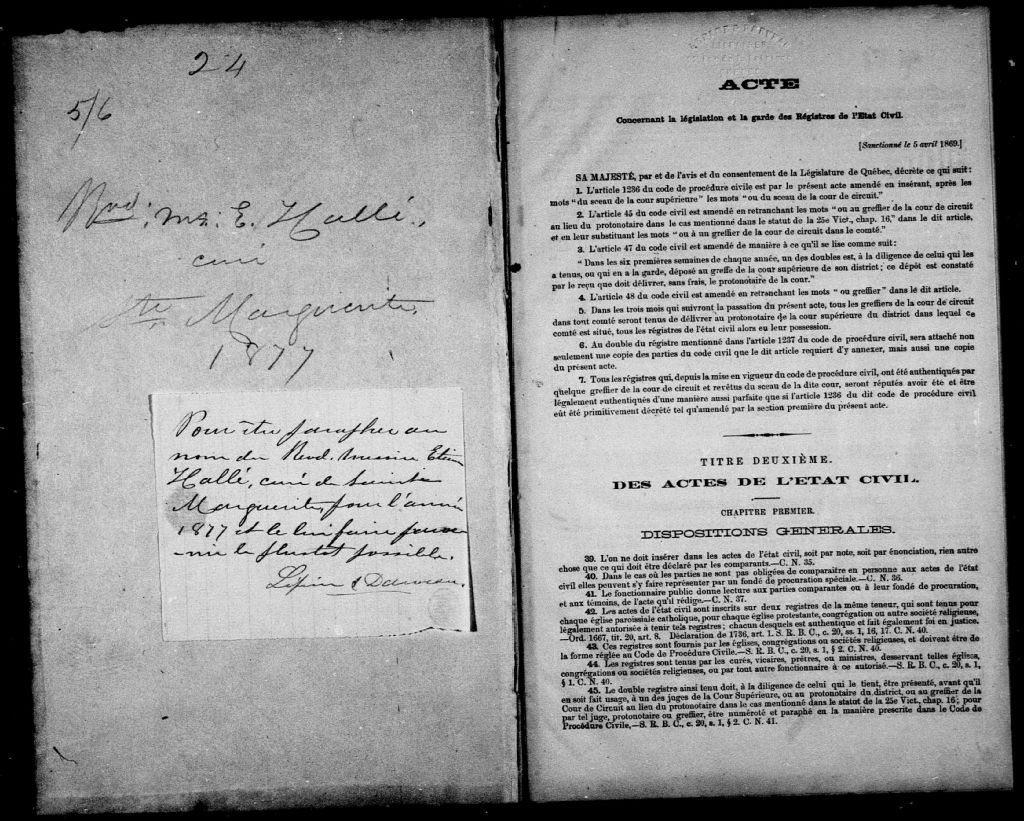 24
5/6
Rvd. Mr. E. Hallé.
curé
Ste Marguerite.
1877
Pour être parapher au
nom du Revd. messire Etien
Hallé, curé de Sainte
Marguerite, pour l'année
1877 et le lui faire parve
-nir le plustot possible.
ACTE
Concernant la législation et la garde des Régistres de l'Etat Civil.
[Sanctionné le 5 avril 1869.]
SA MAJESTÉ, par et de l'avis et du consentement de la Législature de Québec, décrète ce qui suit:
1. L'article 1236 du code de procédure civile est par le présent acte amendé en insérant, après les
mots "du sceau de la cour supérieure" les mots "ou du sceau de la cour de circuit."
2. L'article 45 du code civil est amendé en retranchant les mots "ou au greffier de la cour de circuit
au lieu du protonotaire dans le cas mentionné dans le statut de la 25e Vict., chap. 16," dans le dit article,
et en leur substituant les mots "ou à un greffier de la cour de circuit dans le comté."
3. L'article 47 du code civil est amendé de manière à ce qu'il se lise comme suit:
"Dans les six premières semaines de chaque année, un des doubles est, à la diligence de celui qui les
a tenus, ou qui en a la garde, déposé au greffe de la cour supérieure de son district; ce dépôt est constaté
par le reçu que doit délivrer, sans frais, le protonotaire de la cour."
4. L'article 48 du code civil est amendé en retranchant les mots "ou greffier" dans le dit article.
5. Dans les trois mois qui suivront la passation du présent acte, tous les greffiers de la cour de circuit
dans tout comté seront tenus de délivrer au protonotaire de la cour supérieure du district dans lequel ce
comté est situé, tous les registres de l'état civil alors eu leur possession.
6. Au double du régistre mentionné dans l'article 1237 du code de procédure civil, sera attaché non
seulement une copie des parties du code civil que le dit article requiert d'y annexer, mais aussi une copie
du présent acte.
7. Tous les régistres qui, depuis la mise en vigueur du code de procédure civil, ont été authentiqués par
quelque greffier de la cour de circuit et revêtus du sceau de la dite cour, seront réputés avoir été et être
légalement authentiqués d'une manière aussi parfaite que si l'article 1236 du dit code de procédure civil
eût été primitivement décrété tel qu'amendé par la section première du présent acte.
TITRE DEUXIÈME.
DES ACTES DE L'ETAT CIVIL.
CHAPITRE PREMIER.
DISPOSITIONS GENERALES.
39. L'on ne doit insérer dans les actes de l'état civil, soit par note, soit par énonciation, rien autre
chose que ce qui doit être déclaré par les comparants.—C. N. 35.
40. Dans le cas où les parties ne sont pas obligées de comparaître en personne aux actes de l'état
civil elles peuvent s'y faire représenter par un fondé de procuration spéciale.—C. N. 36.
41. Le fonctionnaire public donne lecture aux parties comparantes ou à leur fondé de procuration,
et aux témoins, de l'acte qu'il rédige.—C. N. 37.
42. Les actes de l'état civil sont inscrits sur deux registres de la même teneur, qui sont tenus pour
chaque église paroissiale catholique, pour chaque église protestante, congrégation ou autre société religieuse,
légalement autorisée à tenir tels registres; chacun desquels est authentique et fait également foi en justice.
—Ord. 1667, tit. 20, art. 8. Déclaration de 1736, art. 1. S. R. B. C., c. 20, ss. 1, 16, 17. C. N. 40.
43. Ces registres sont fournis par les églises, congrégations ou sociétés religieuses, et doivent être de
la forme réglée au Code de Procédure Civile.—S. R. B. C., c. 20, s. 1, § 2. C. N. 40.
44. Les registres sont tenus par les curés, vicaires, prêtres, ou ministres, desservant telles églises,
congrégations ou sociétés religieuses, ou par tout autre fonctionnaire à ce autorisé.—S. R. B. C., c. 20, s. 1,
§ 1. C. N. 40.
45. Le double registre ainsi tenu doit, à la diligence de celui qui le tient, être présenté, avant qu'il
en soit fait usage, à un des juges de la Cour Supérieure, ou au protonotaire du district, ou au greffier de la
Cour de Circuit au lieu du protonotaire dans le cas mentionné dans le statut de la 25e Vict., chap. 16; pour
par tel juge, protonotaire ou greffier, être numéroté et paraphé en la manière prescrite dans le Code de
Procédure Civile,—S. R. B. C., c. 20, s. 1, § 2. C. N. 41.